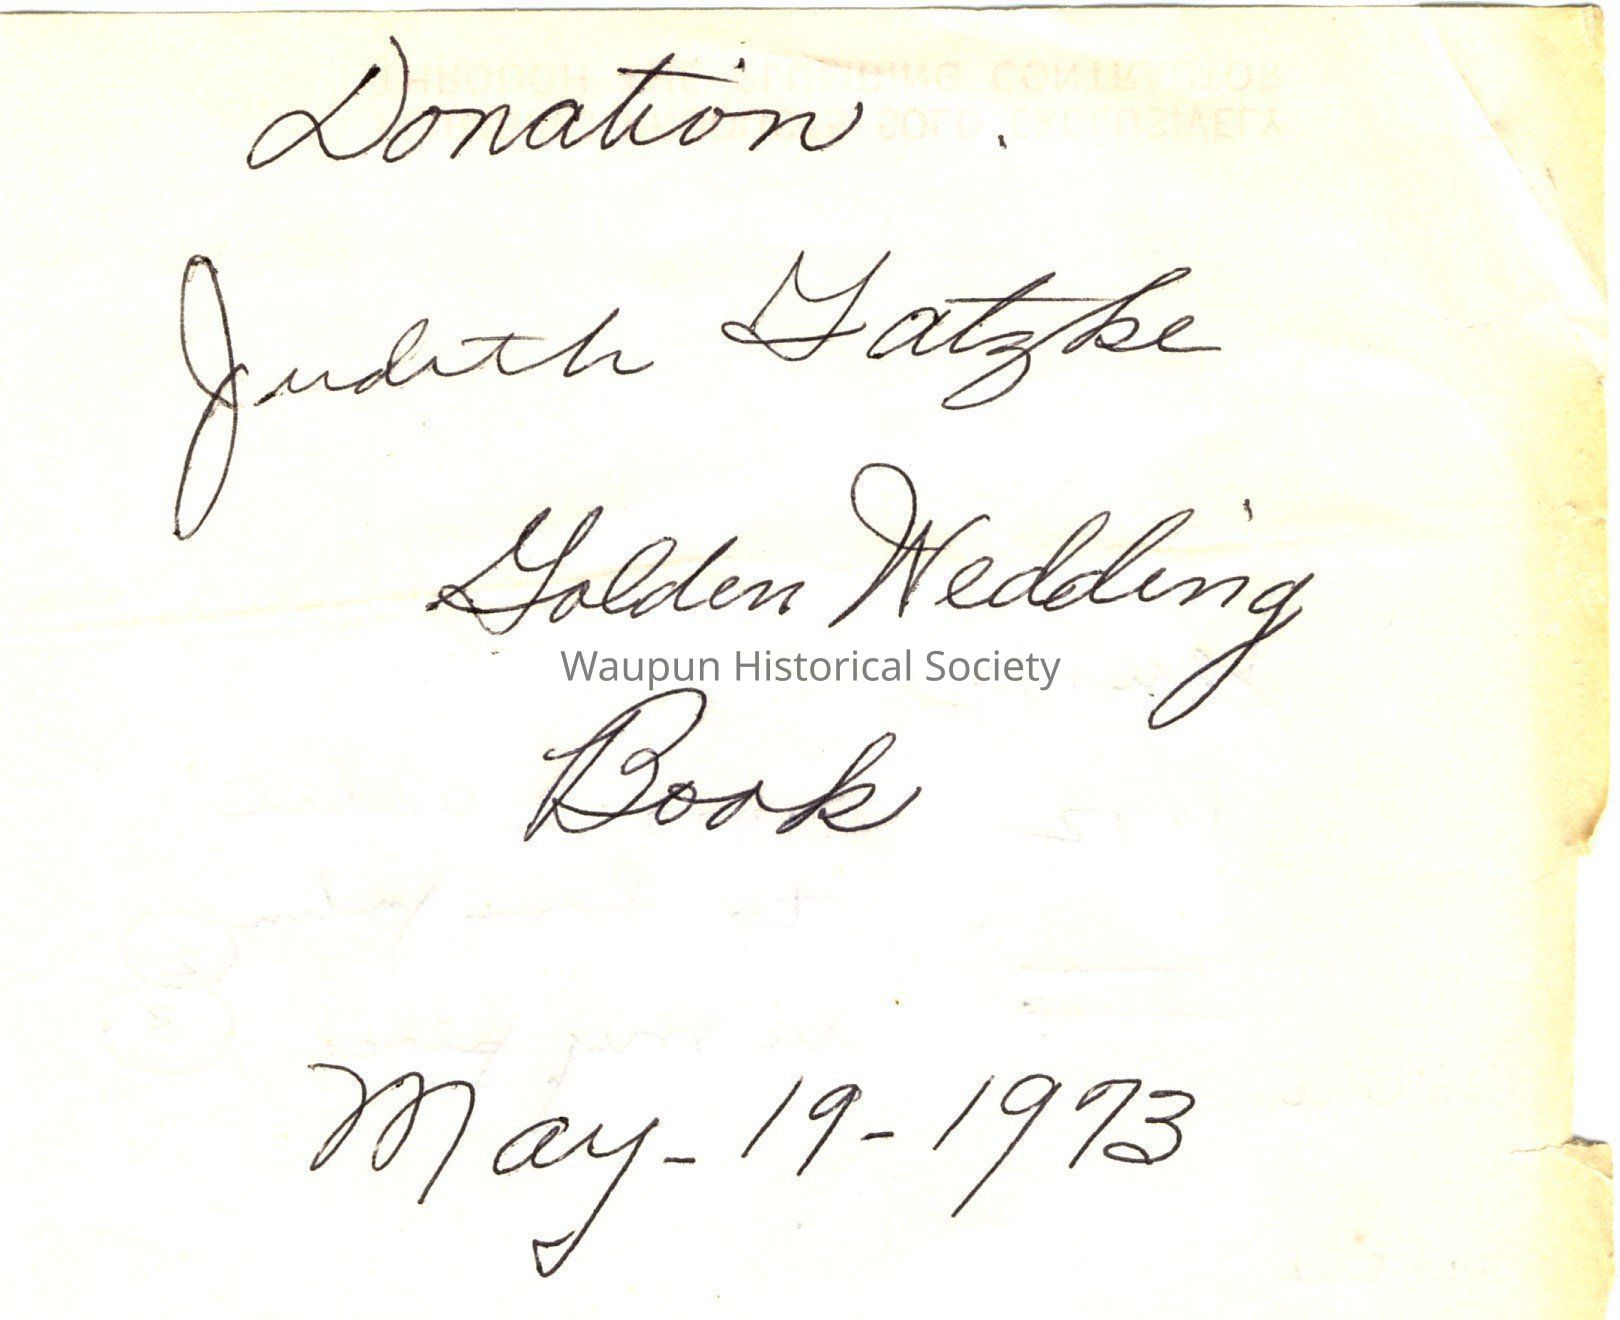 Donation.
Judith Gatzke
Golden Wedding
Waupun Historical Society
Book
May - 19 - 1973